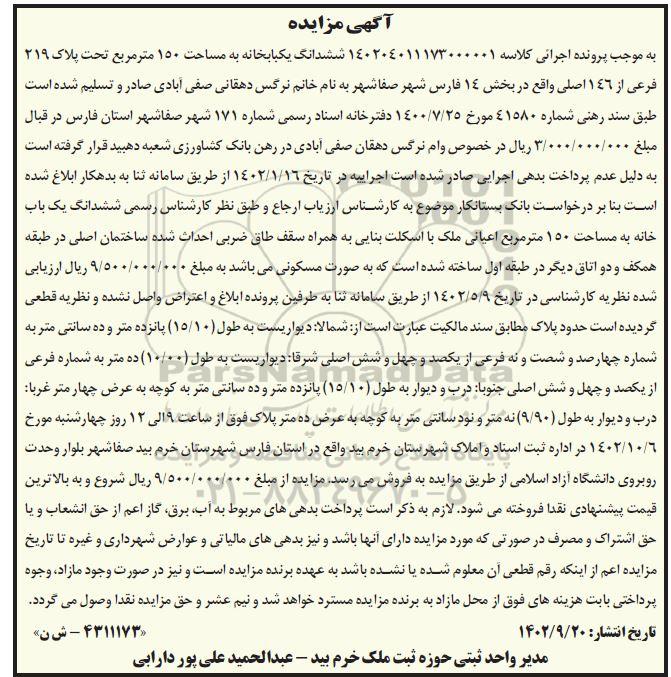 آگهی مزایده
به موجب پرونده اجرائی کلاسه ۱۴۰۲۰۴۰۱۱۱۷۳۰۰۰۰۰۱ ششدانگ یکبابخانه به مساحت ۱۵۰ مترمربع تحت پلاک ۲۱۹
فرعی از ۱۴۶ اصلی واقع در بخش ۱۴ فارس شهر صفاشهر به نام خانم نرگس دهقانی صفی آبادی صادر و تسلیم شده است
طبق سند رهنی شماره ۴۱۵۸۰ مورخ ۱۴۰۰/۷/۲۵ دفترخانه اسناد رسمی شماره ۱۷۱ شهر صفاشهر استان فارس در قبال
مبلغ ۳/۰۰۰/۰۰۰/۰۰۰ ریال در خصوص وام نرگس دهقان صفی آبادی در رهن بانک کشاورزی شعبه دهبید قرار گرفته است
به دلیل عدم پرداخت بدهی اجرایی صادر شده است اجراییه در تاریخ ۱۴۰۲/۱/۱۶ از طریق سامانه ثنا به بدهکار ابلاغ شده
است بنا بر درخواست بانک بستانکار موضوع به کارشناس ارزیاب ارجاع و طبق نظر کارشناس رسمی ششدانگ یک باب
خانه به مساحت ۱۵۰ مترمربع اعیانی ملک با اسکلت بنایی به همراه سقف طاق ضربی احداث شده ساختمان اصلی در طبقه
همکف و دو اتاق دیگر در طبقه اول ساخته شده است که به صورت مسکونی می باشد به مبلغ ۹/۵۰۰/۰۰۰/۰۰۰ ریال ارزیابی
شده نظریه کارشناسی در تاریخ ۱۴۰۲/۵/۹ از طریق سامانه ثنا به طرفین پرونده ابلاغ و اعتراض واصل نشده و نظریه قطعی
گردیده است حدود پلاک مطابق سند مالکیت عبارت است از: شمالا: دیواریست به طول (۱۵/۱۰) پانزده متر و ده سانتی متر به
شماره چهارصد و شصت و نه فرعی از یکصد و چهل و شش اصلی شرقا: دیواریست به طول (۱۰/۰۰) ده متر به شماره فرعی
از یکصد و چهل و شش اصلی جنوبا: درب و دیوار به طول (۱۵/۱۰) پانزده متر و ده سانتی متر به کوچه به عرض چهار متر غربا:
درب و دیوار به طول (۹/۹۰) نه متر و نود سانتی متر به کوچه به عرض ده متر پلاک فوق از ساعت ۹ الی ۱۲ روز چهارشنبه مورخ
۱۴۰۲/۱۰/۶ در اداره ثبت اسناد و املاک شهرستان خرم بید واقع در استان فارس شهرستان خرم بید صفاشهر بلوار وحدت
روبروی دانشگاه آزاد اسلامی از طریق مزایده به فروش می رسد. مزایده از مبلغ ۹/۵۰۰/۰۰۰/۰۰۰ ریال شروع و به بالاترین
قیمت پیشنهادی نقدا فروخته می شود. لازم به ذکر است پرداخت بدهی های مربوط به آب، برق، گاز اعم از حق انشعاب و یا
حق اشتراک و مصرف در صورتی که مورد مزایده دارای آنها باشد و نیز بدهی های مالیاتی و عوارض شهرداری و غیره تا تاریخ
مزایده اعم از اینکه رقم قطعی آن معلوم شده یا نشده باشد به عهده برنده مزایده است و نیز در صورت وجود مازاد، وجوه
پرداختی بابت هزینه های فوق از محل مازاد به برنده مزایده مسترد خواهد شد و نیم عشر و حق مزایده نقدا وصول می گردد.
تاریخ انتشار: ۱۴۰۲/۹/۲۰ «۴۳۱۱۱۷۳ – ش ن»
مدیر واحد ثبتی حوزه ثبت ملک خرم بید – عبدالحمید علی پور دارابی
ParsNamadData
پایگاه اطلاع رسانی مناقصه و مزایده
۰۲۱-۸۸۳۴۹۶۷۰-۵